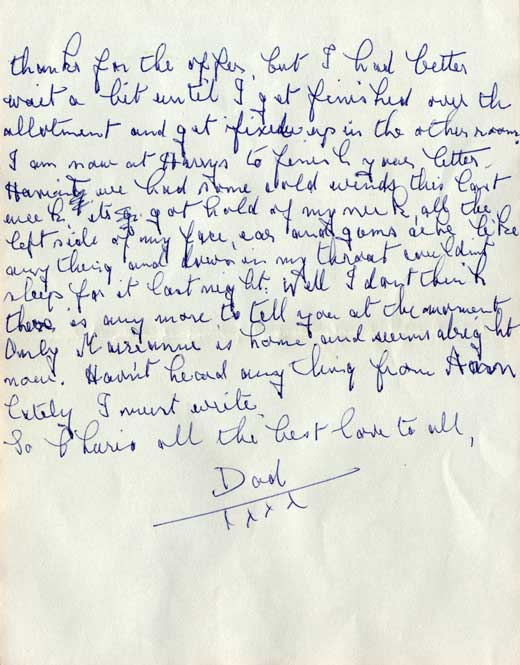 thanks for the offer, but I had better
wait a bit until I get finished over the
allotment and get fixed up in the other room.
I am now at Harrys to finish your letter.
we had some cold winds this last
week. its got hold of my neck, all the
left side of my face, ear and gums ache like
anything and down in my throat couldnt
sleep for it last night. Well I dont think
there is any more to tell you at the moment
Only Marianne is home and seems alright
now. Havn't heard any thing from
lately I must write.
So Cheerio all the best love to all,
Dad
x x x x